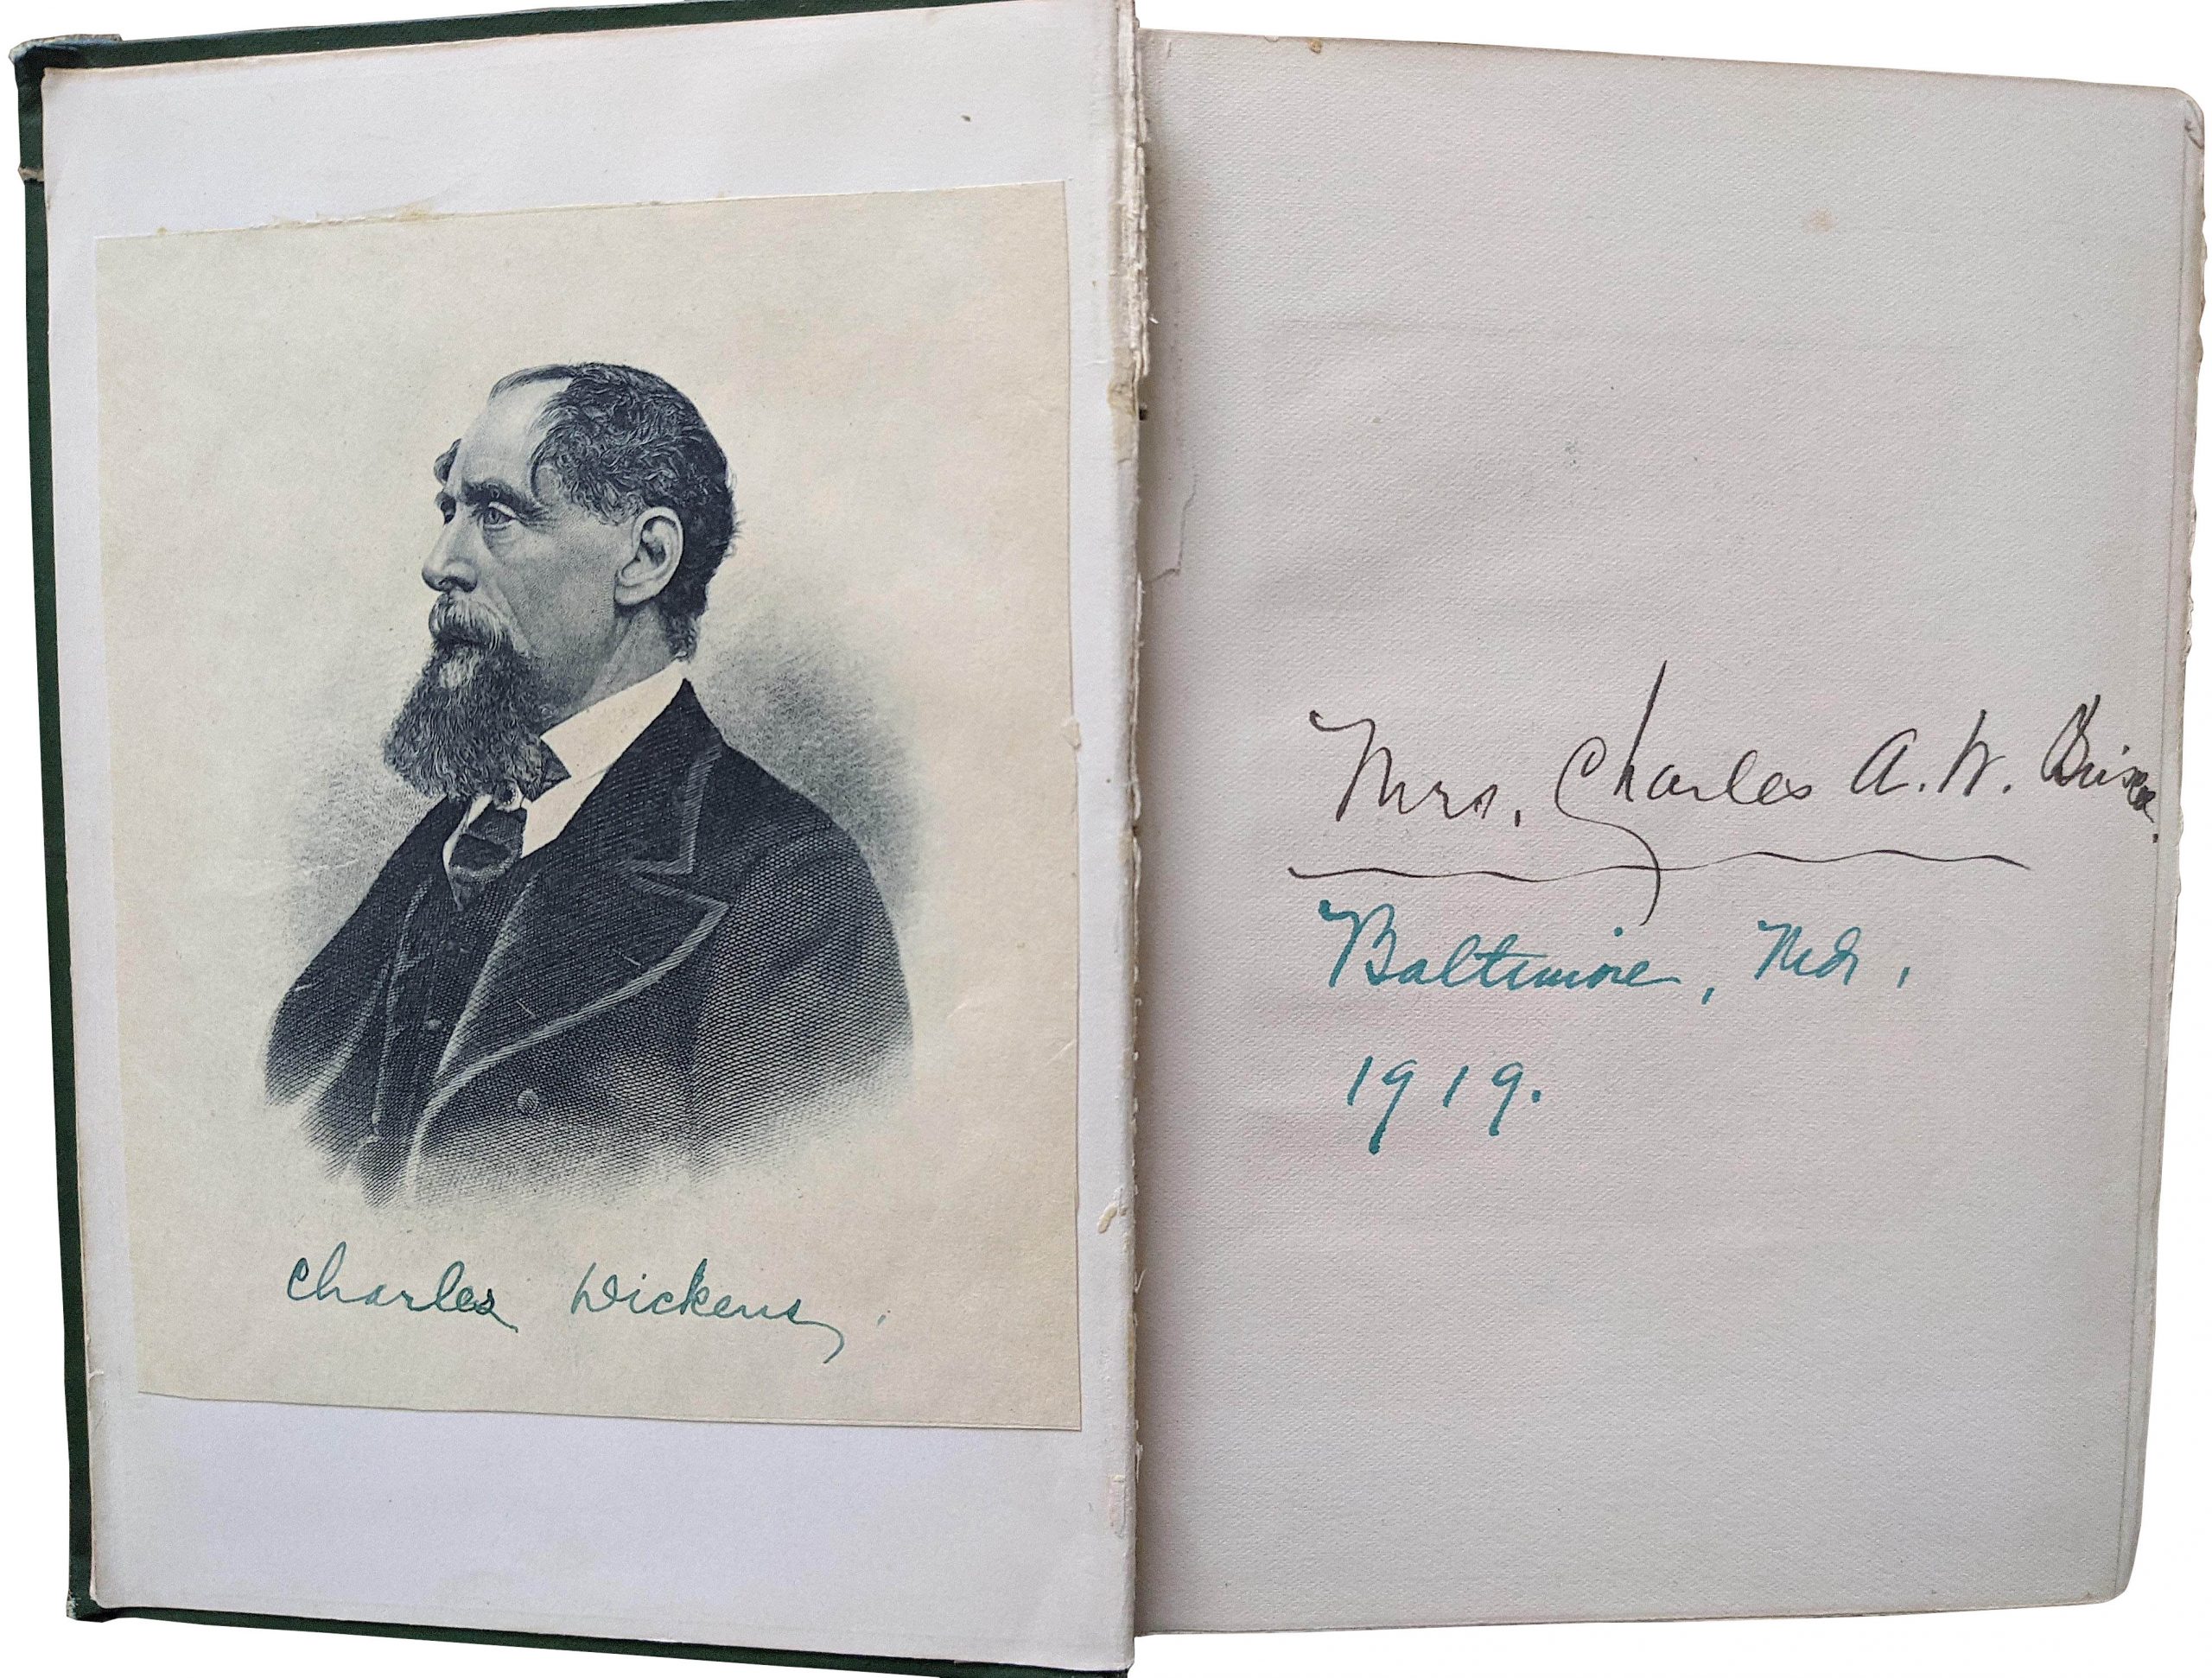 Charles Dickens.
Mrs. Charles A. W. Briscoe.
Baltimore, Md.
1919.